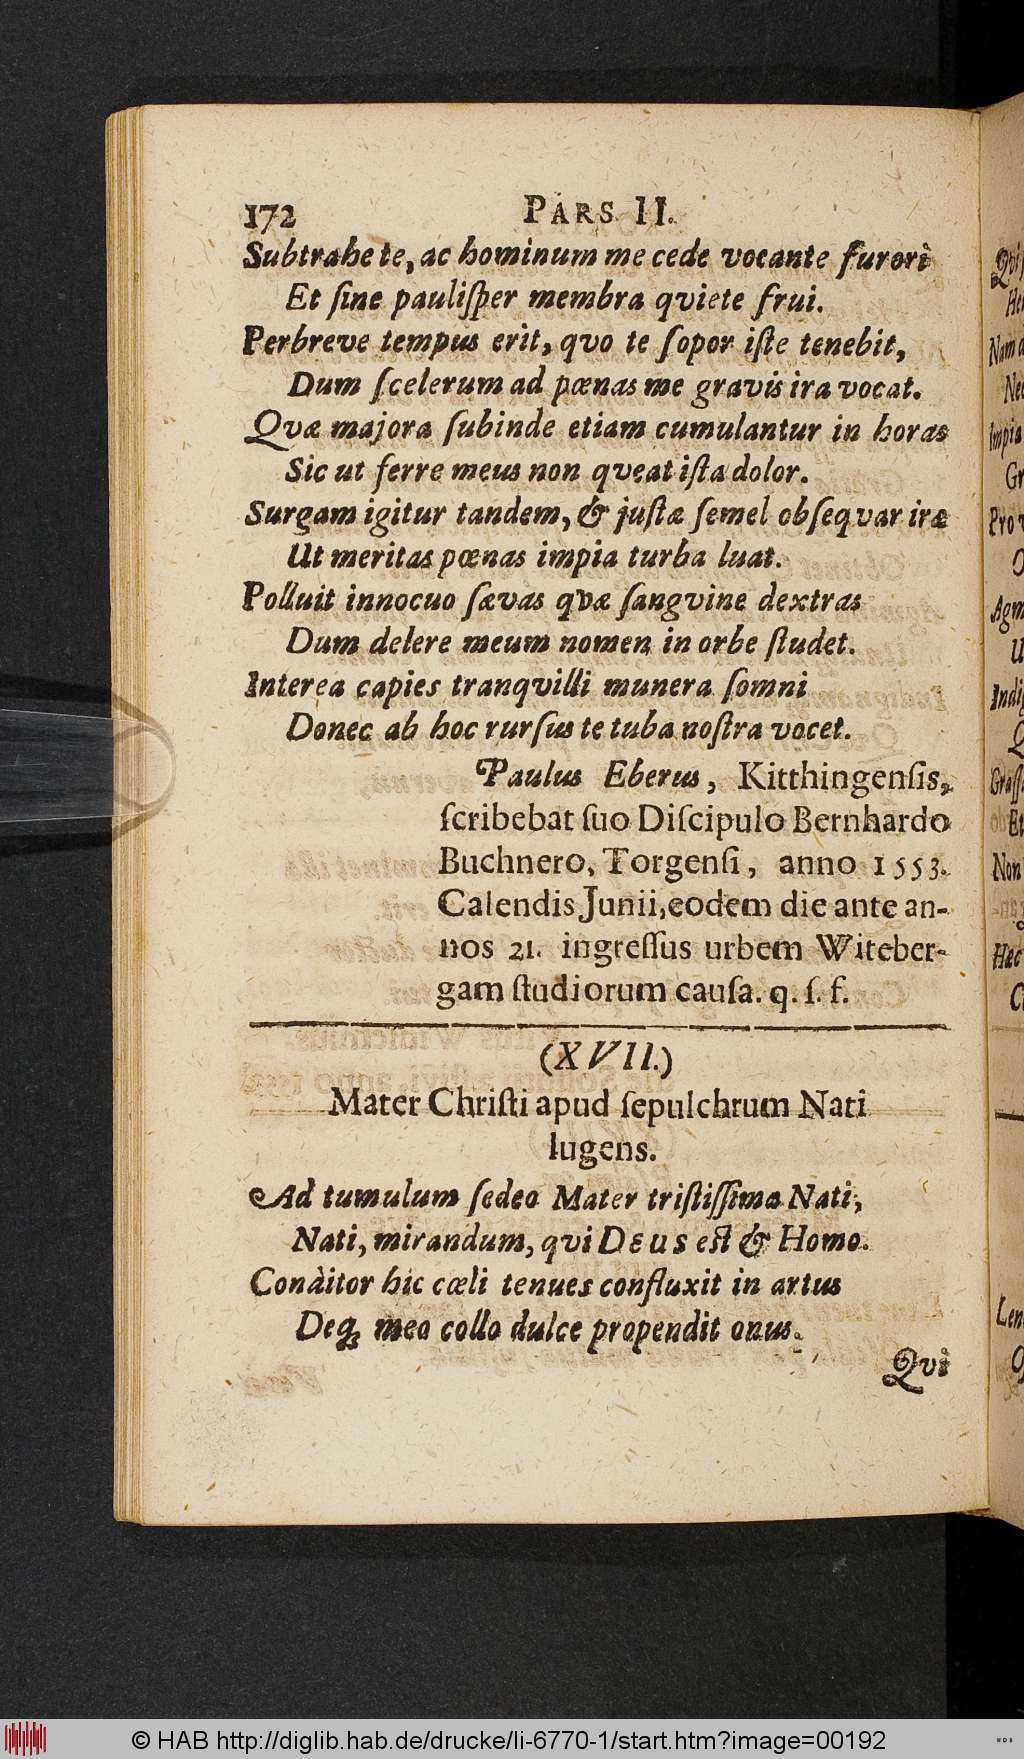 172 PARS II.
Subtrahe te, ac hominum me cede vocante furori
Et ſine pauliſper membra qviete frui.
Perbreve tempus erit, qvo te ſopor iſte tenebit,
Dum ſcelerum ad pœnas me gravis ira vocat.
Qvæ majora ſubinde etiam cumulantur in horas
Sic ut ferre meus non qveat iſta dolor.
Surgam igitur tandem, & juſtæ ſemel obſeqvar iræ
Ut meritas pœnas impia turba luat.
Polluit innocuo ſævas qvæ ſangvine dextras
Dum delere meum nomen in orbe ſtudet.
Interea capies tranqvilli munera ſomni
Donec ab hoc rurſus te tuba noſtra vocet.
Paulus Eberus, Kitthingenſis,
ſcribebat ſuo Diſcipulo Bernhardo
Buchnero, Torgenſi, anno 1553.
Calendis Junii, eodem die ante an-
nos 21. ingreſſus urbem Witeber-
gam ſtudiorum cauſa. q. ſ. f.
(XVII.)
Mater Chriſti apud ſepulchrum Nati
lugens.
Ad tumulum ſedeo Mater triſtiſſima Nati,
Nati, mirandum, qvi DEUS eſt & Homo.
Conditor hic cœli tenues confluxit in artus
Deq; meo collo dulce propendit onus.
Qvi
© HAB http://diglib.hab.de/drucke/li-6770-1/start.htm?image=00192